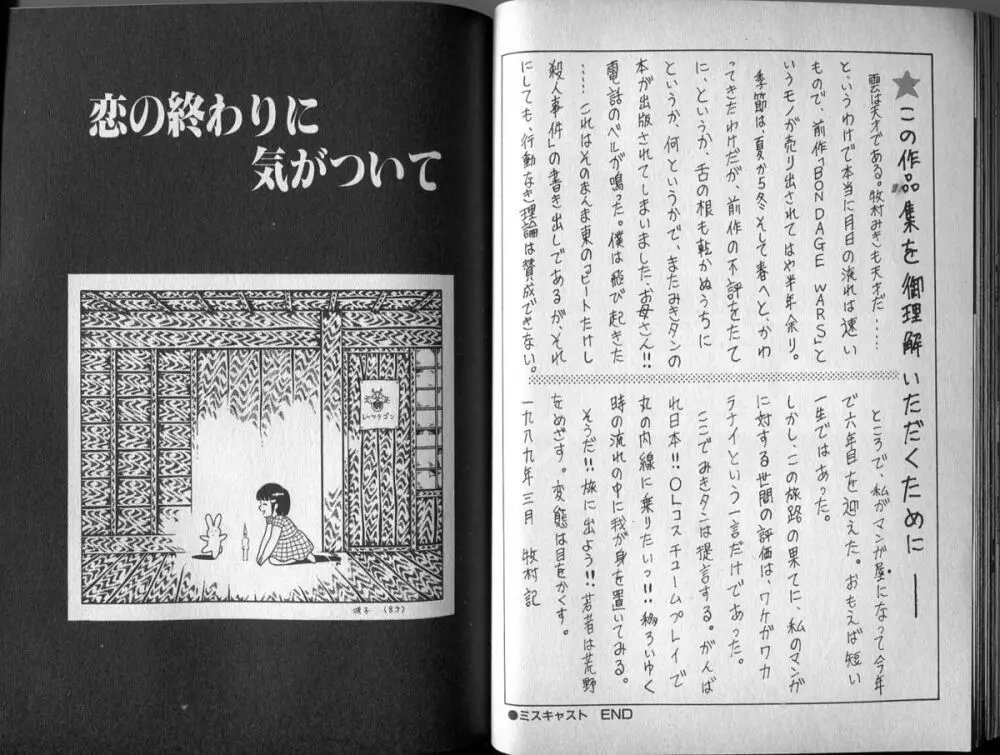 ★この作品集を御理解いただくために——
雲は天才である。牧村みきも天才だ……
というわけで本当に月日の流れは速い
もので、前作「BONDAGE WARS」と
いうモノが売り出されてはや半年余り。
季節は、夏から冬そして春へと、かわ
ってきたわけだが、前作の不評をたて
に、というか、舌の根も乾かぬうちに
というか、何というかで、またみきタンの
本が出版されてしまいました、お母さん!!
電話のベルが鳴った。僕は飛び起きた
……これはそのまんま東の「ビートたけし
殺人事件」の書き出しであるが、それ
にしても、行動なき理論は賛成できない。
ところで、私がマンガ屋になって今年
で六年目を迎えた。おもえば短い
一生ではあった。
しかし、この旅路の果てに、私のマンガ
に対する世間の評価は、ワケがワカ
ラナイという一言だけであった。
ここでみきタンは提言する。がんば
れ日本!!OLコスチュームプレイで
丸の内線に乗りたいっ!!移ろいゆく
時の流れの中に我が身を置いてみる。
そうだ!!旅に出よう!!若者は荒野
をめざす。変態は目をかくす。
一九八九年 三月 牧村記
●ミスキャスト END
恋の終わりに
気がついて
レッツラゴン
咲子 (8才)